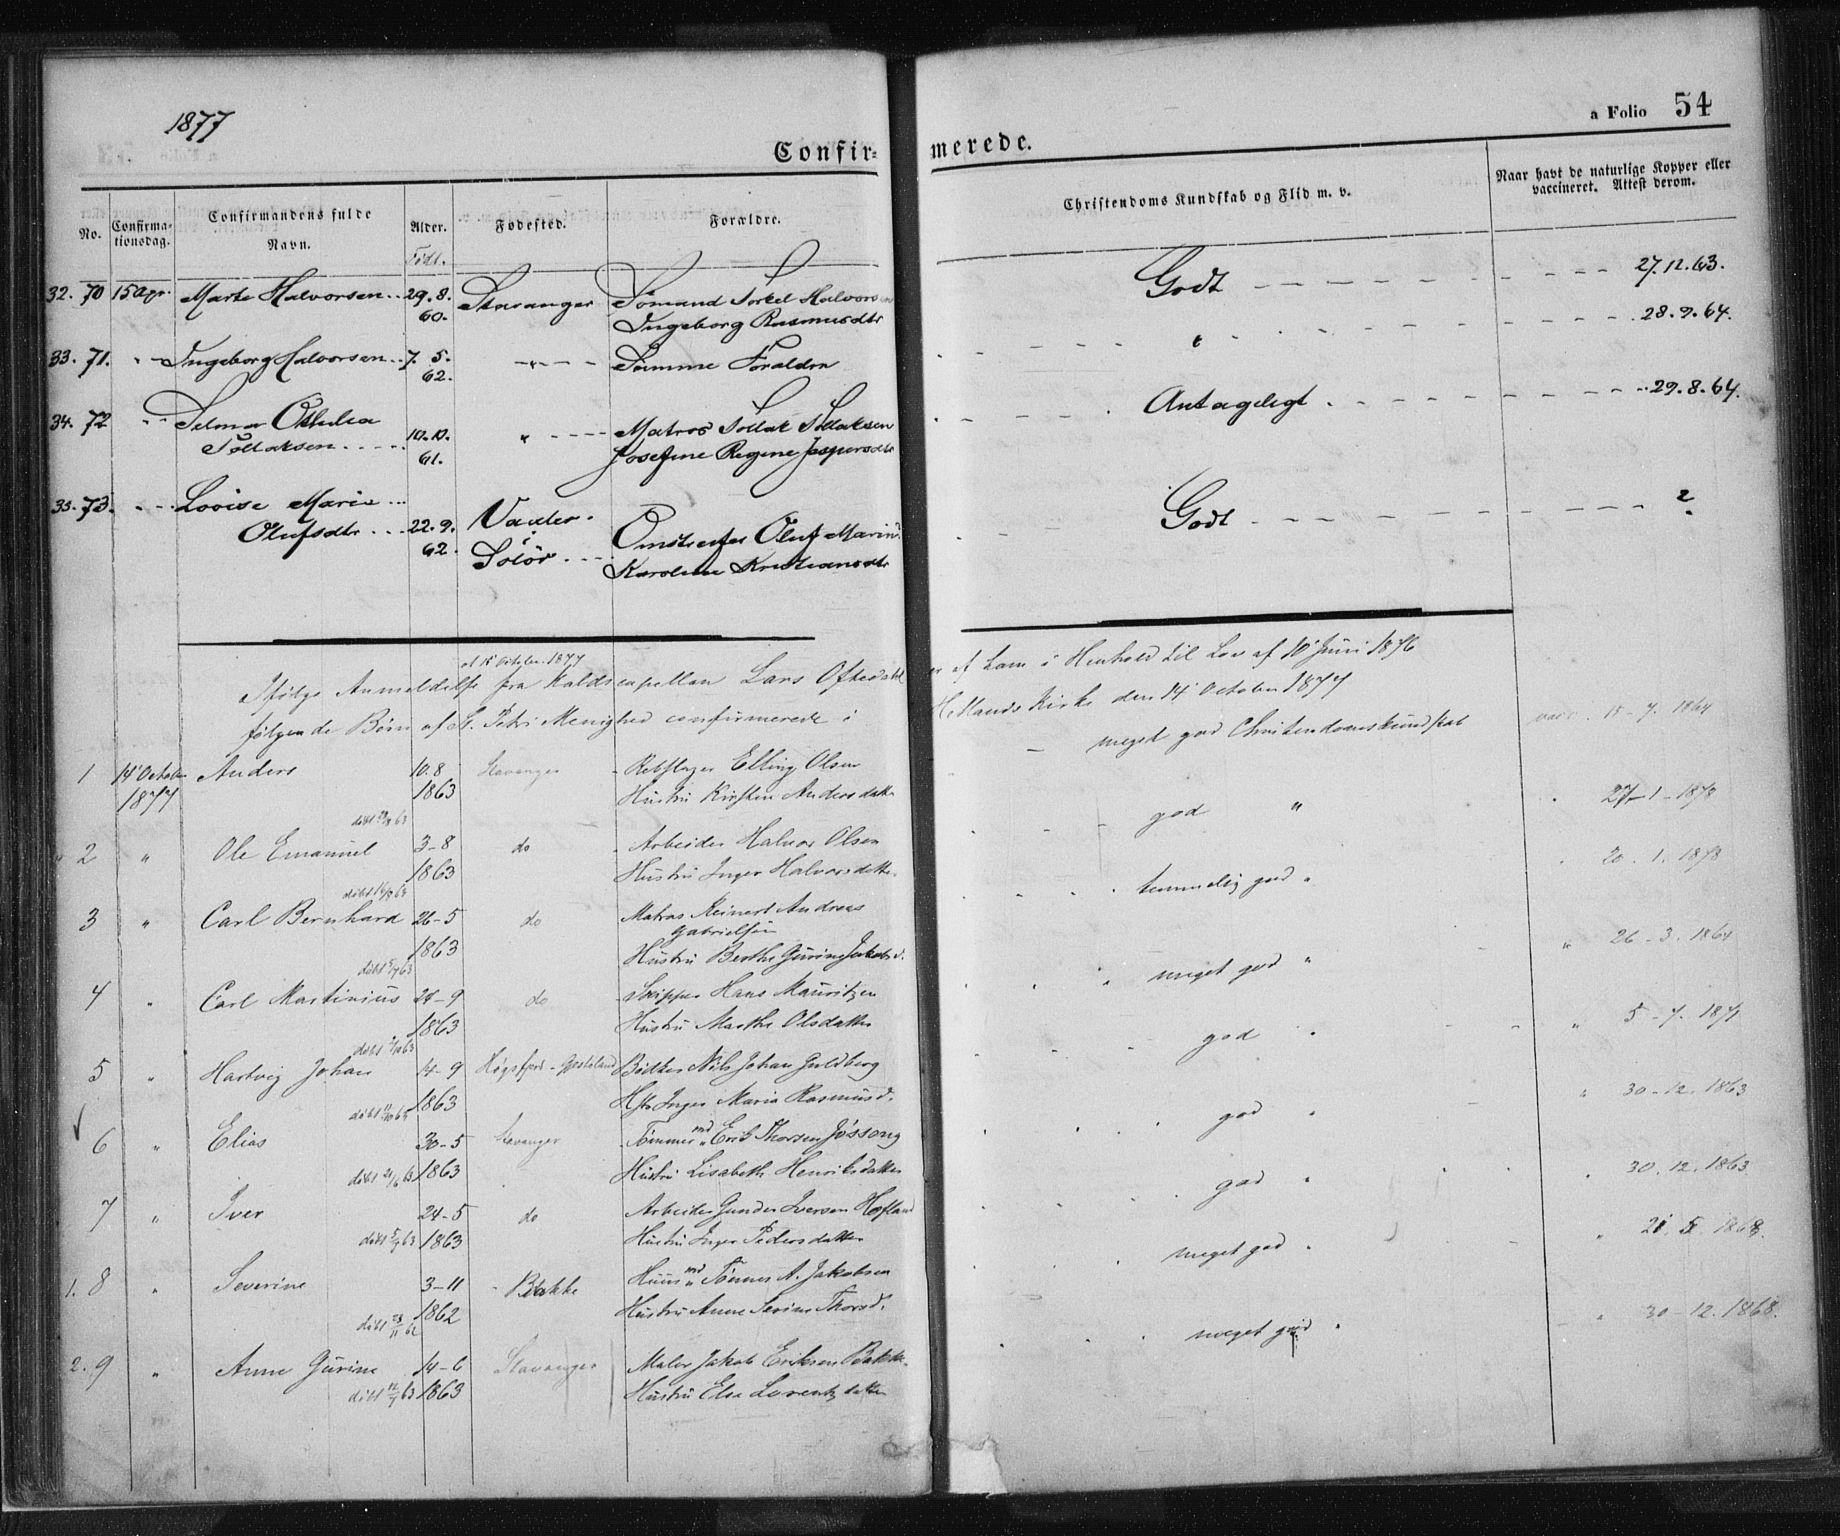 1877
a Folio 54
Confir= merede.
No. Confirma-tionsdag. Confirmandens fulde Navn. Alder. Fødested. Forældre. Christendoms Kundskab og Flid m. v. Naar havt de naturlige Kopper eller vaccineret. Attest derom.
Født.
32. 70 15 Apr. Marte Halvorsen 29. 8. Stavanger Sømand Torkel Halvorsen Godt 27.12.63.
60. Ingeborg Rasmusdtr
33. 71. " Ingeborg Halvorsen 7. 5. " Samme Forældre " 28.9.64.
62.
34. 72 " Selma Othilia 10.10. " Matros Tollak Tollaksen Antageligt 29.8.64.
Tollaksen 61. Josefine Regine Jespersdtr
35. 73. " Lovise Marie Godt ?
Olufsdtr 22.9. Oluf
62. Solør Karoline Kristiansdtr
at 15 October 1877
Ifølge Anmeldelse fra Kaldscapellan Lars Oftedahl er af ham i Henhold til Lov af 10 Juni 1876
følgende Børn af St. Petri Menighed confirmerede i Hetlands Kirke den 14 October 1877
1 14 October Anders 10.8 Stavanger Rebslager Elling Olsen meget god Christendomskundskab vacc. 15-7. 1864
1877 1863 Hustru Kirsten Andersdatter
døbt 63
2 " Ole Emanuel 3-8 do Arbeider Halvor Olsen god " 27-1-1878
1863 Hustru Inger Halvorsdatter
døbt 63
3 " Carl Bernhard 26-5 do Matros Reinert Andreas temmelig god " 20.1.1878
Gabrielsen
1863 Hustru Berthe Gurine Jakobsd.
døbt 5/7 63
4 " Carl Martinius 24-9 do Skipper Hans Mauritzen meget god " " 26-3.1864
1863 Hustru Marthe Olsdatter
døbt 63
5 " Hartvig Johan 14-9 Høgsfjord Bødker Nils Johan Guldberg god " " 5-7.1871
1863 Hstr Inger Maria Rasmusd.
døbt 63
6 " Elias 30-5 Stavanger Tømmermd Erik Thorsen Jøssang god " " 30-12.1863
døbt 21/6 63 1863 Hustru Lisabeth Henriksdatter
7 " Iver 24-5 do Arbeider Gunder Iversen Hofland god " " 30.12.1863
døbt 5/7 63 1863 Hustru Inger Pedersdatter
1. 8 " Severine 3-11 Bakke Huusmd Tønnes A. Jakobsen meget god " " 1868.
døbt 23/11 62 1862 Hustru Anne Serine Thorsd.
2. 9 " Anne Gurine 14-6 Stavanger Maler Jakob Eriksen Bakke meget god " " 30-12.1868.
døbt 12/7 63 1863 Hustru Else Lorentzdatter